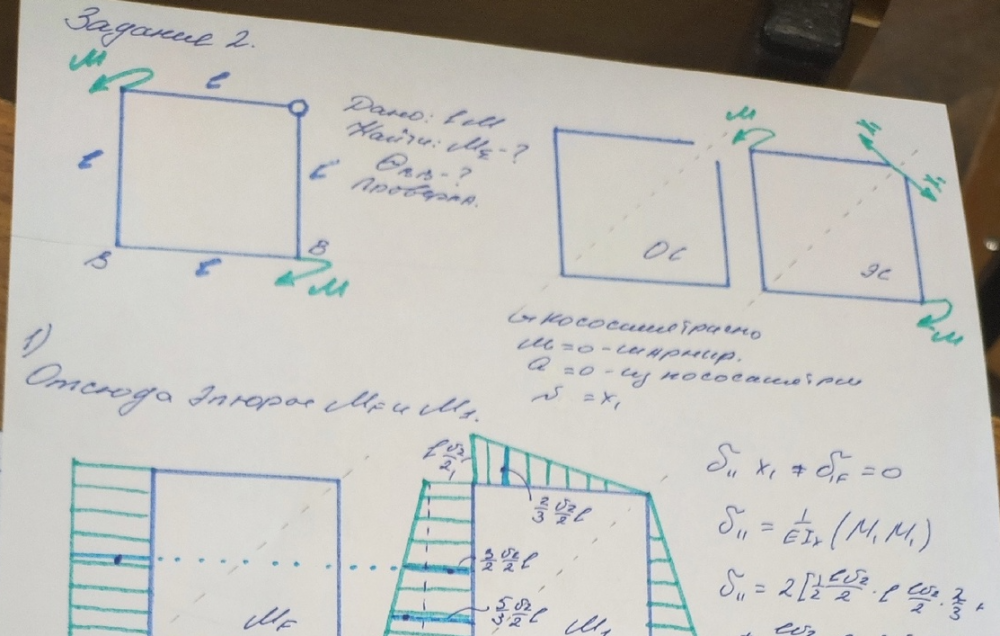 Задание 2.
M
l
Дано: l M
Найти: Mε-?
Θвв-?
Проверка.
l
l
B
B
l
M
M
X₁
X₁
ОС
ЭС
M
Кососимметрично
M=0-шарнир.
Q=0-из кососимметрии
= X₁
1)
Отсюда Эпюры M_F и M₁.
l√2/2
2/3 √2/2 l
3/2 √2/2 l
5/3 √2/2 l
M_F
M₁
δ₁₁ X₁ + δ₁F = 0
δ₁₁ = 1/EIx (M₁ M₁)
δ₁₁ = 2[1/2 l√2/2 · l l√2/2 · 2/3 +